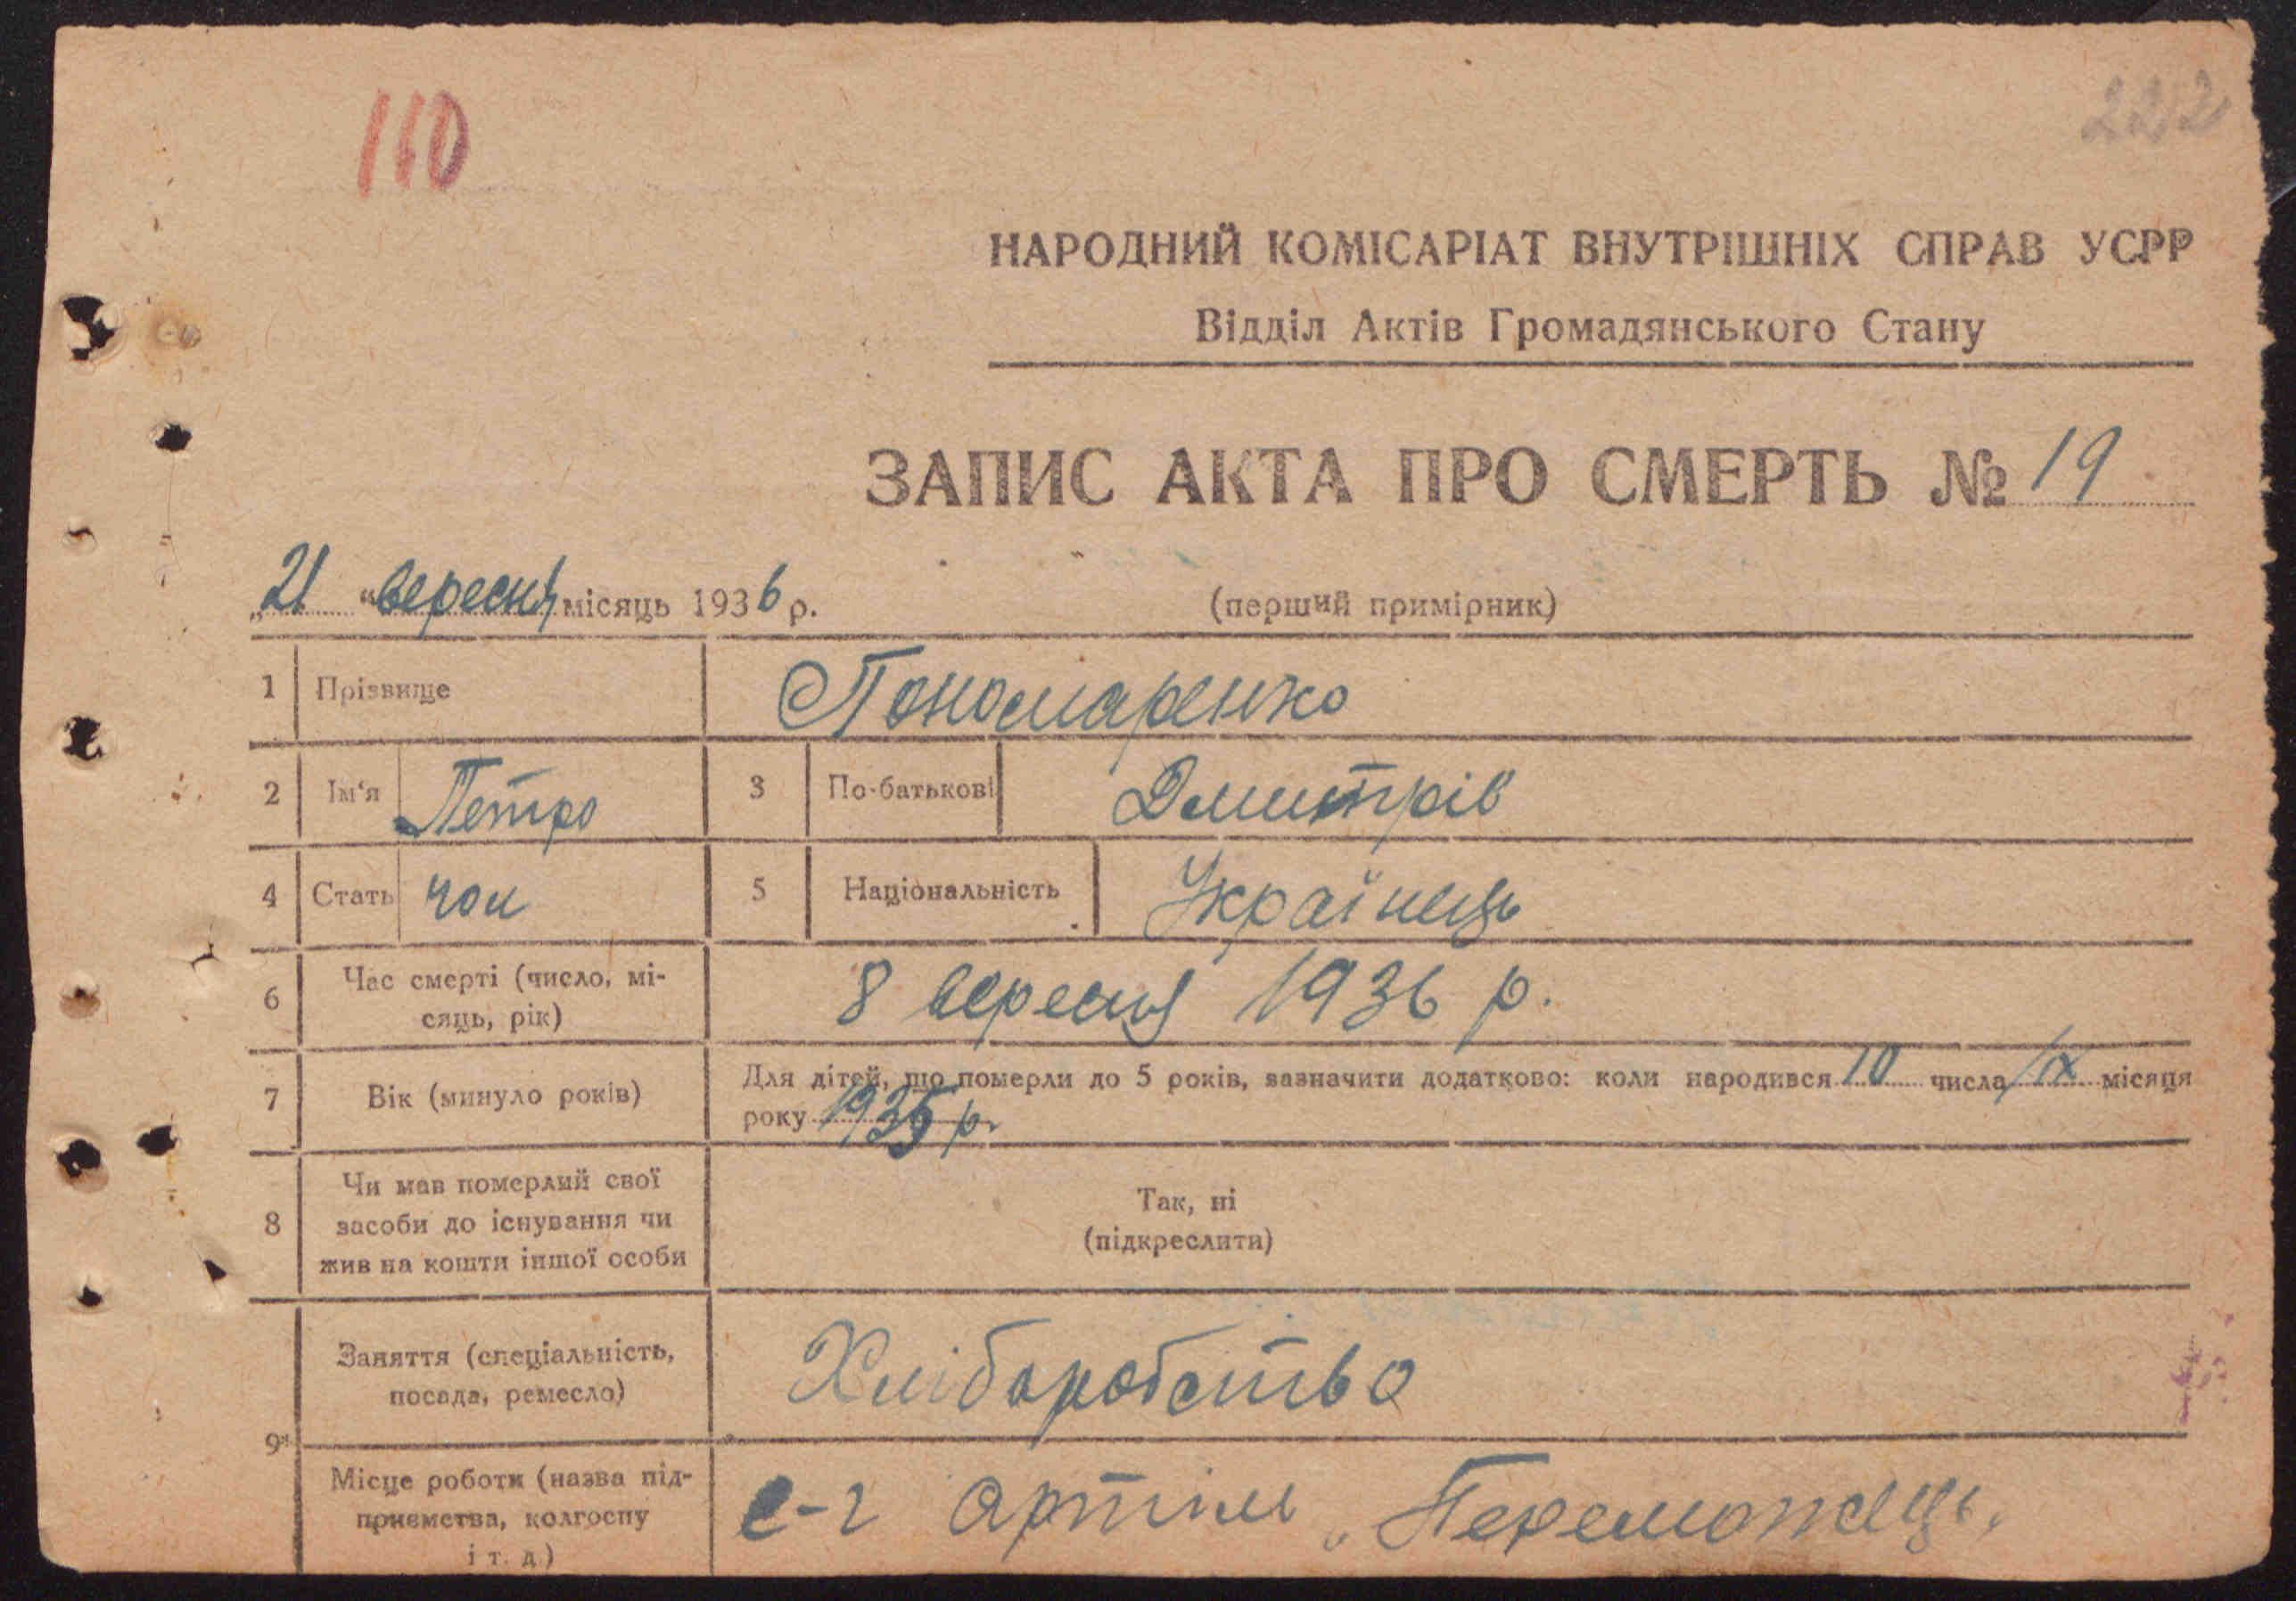 110
222
НАРОДНИЙ КОМІСАРІАТ ВНУТРІШНІХ СПРАВ УСРР
Відділ Актів Громадянського Стану
ЗАПИС АКТА ПРО СМЕРТЬ № 19
„21“ вересня місяць 1936 р.
(перший примірник)
1 Прізвище Пономаренко
2 Ім‘я Петро 3 По-батькові Дмитрів
4 Стать чол 5 Національність Українець
6 Час смерті (число, мі-
сяць, рік) 8 вересня 1936 р.
7 Вік (минуло років) Для дітей, що померли до 5 років, зазначити додатково: коли народився 10 числа IX місяця
року 1935 р.
8 Чи мав померлий свої
засоби до існування чи
жив на кошти іншої особи
Так, ні
(підкреслити)
9 Заняття (спеціальність,
посада, ремесло) Хліборобство
Місце роботи (назва під-
приємства, колгоспу
і т. д.) с-г артіль „Переможець„